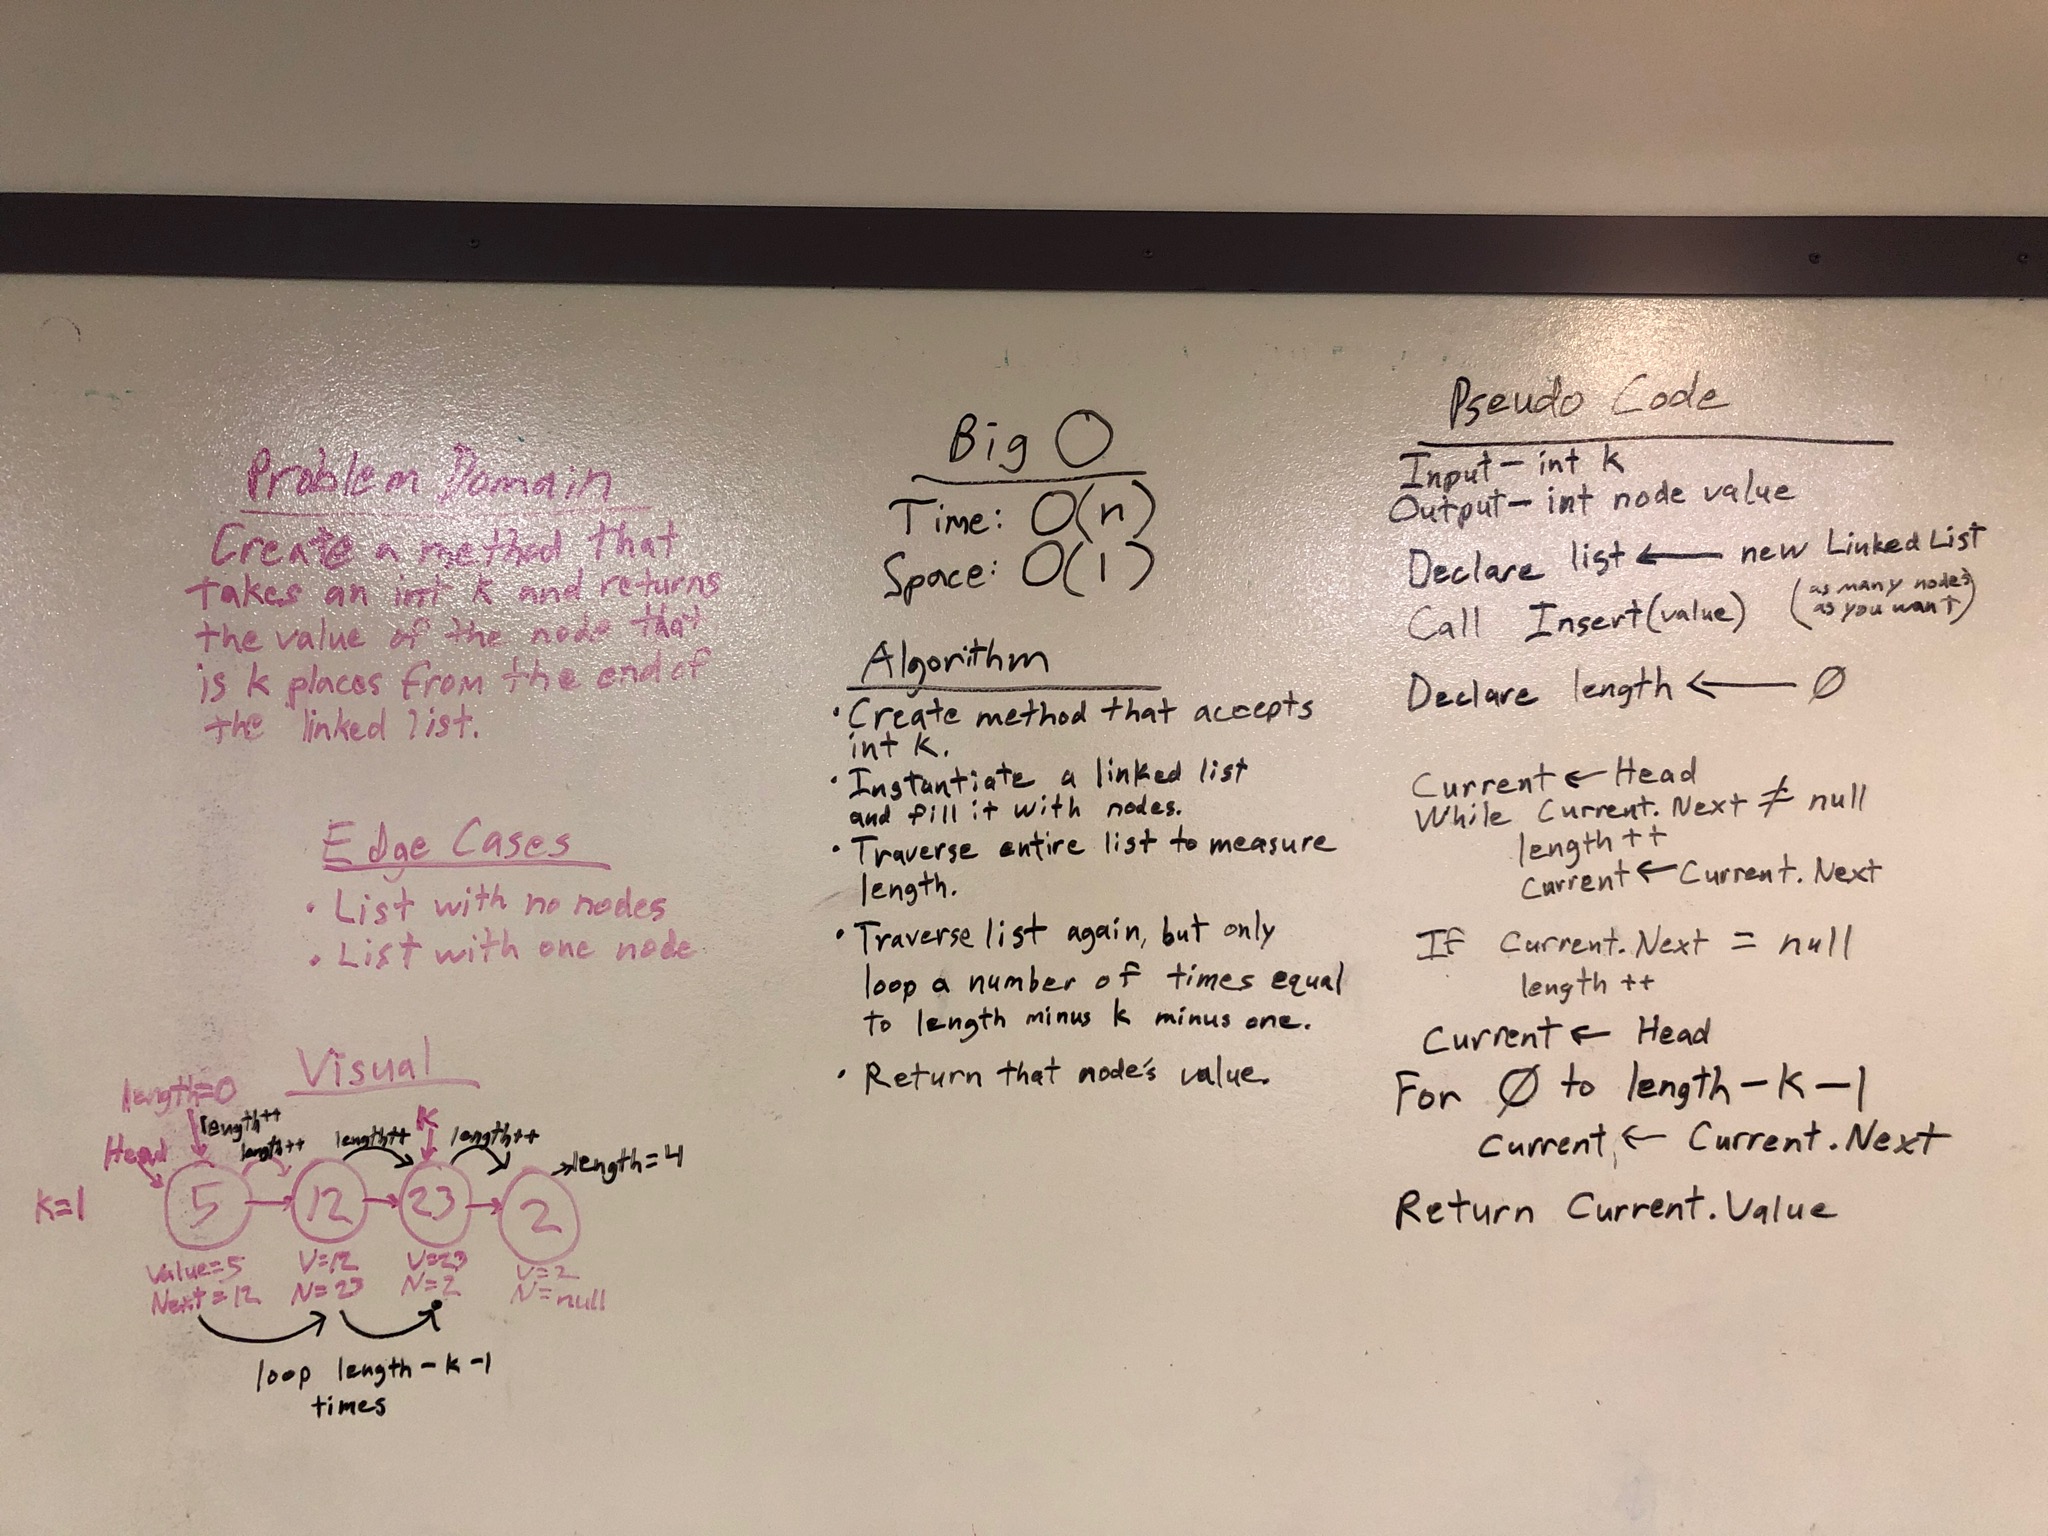 Problem Domain
Create a method that
takes an int k and returns
the value of the node that
is k places from the end of
the linked list.
Edge Cases
• List with no nodes
• List with one node
Visual
length=0
length++
length++
length++
K
length++
Head
→length=4
K=1
5
12
23
2
Value=5
Next=12
V=12
N=23
V=23
N=2
V=2
N=null
loop length-k-1
times
Big O
Time: O(n)
Space: O(1)
Algorithm
• Create method that accepts
int k.
• Instantiate a linked list
and fill it with nodes.
• Traverse entire list to measure
length.
• Traverse list again, but only
loop a number of times equal
to length minus k minus one.
• Return that node's value.
Pseudo Code
Input- int k
Output- int node value
Declare list ← new Linked List
Call Insert(value) (as many nodes
as you want)
Declare length ← Ø
Current ← Head
While Current.Next ≠ null
length ++
Current ← Current.Next
If Current.Next = null
length ++
Current ← Head
For Ø to length-k-1
Current ← Current.Next
Return Current.Value